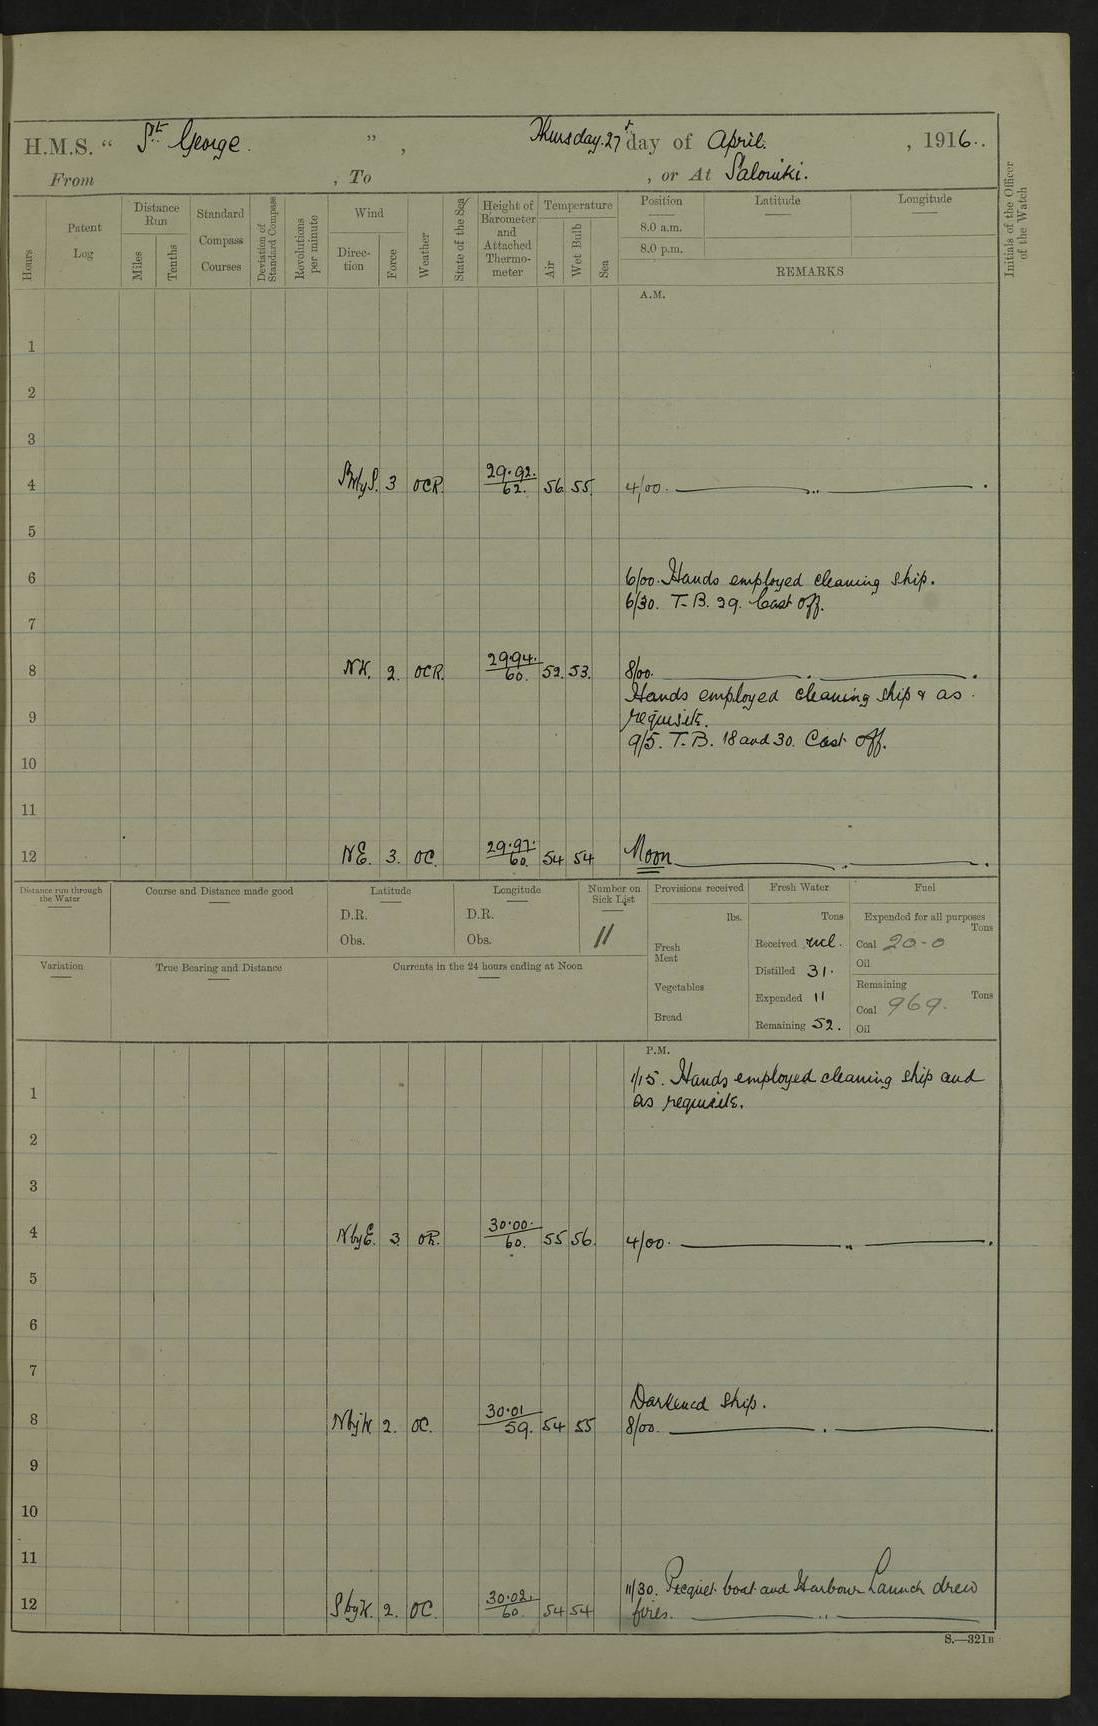 H.M.S. “ St. George. ” , Thursday. 27th day of April. , 1916..
From , To , or At Saloniki.
Hours
Patent Log
Distance Run
Miles
Tenths
Standard Compass Courses
Deviation of Standard Compass
Revolutions per minute
Wind
Direction
Force
Weather
State of the Sea
Height of Barometer and Attached Thermometer
Temperature
Air
Wet Bulb
Sea
Position
8.0 a.m.
8.0 p.m.
Latitude
Longitude
REMARKS
Initials of the Officer of the Watch
A.M.
1
2
3
4 3 OCR. 29.92. 62. 56 55. 4/00.
5
6 6/00. Hands employed cleaning ship.
6/30. T.B. 29. Cast off.
7
8 NW. 2. OCR. 29.94. 60. 52. 53. 8/00.
Hands employed cleaning ship & as
9 requisite.
9/5. T.B. 18 and 30. Cast off.
10
11
12 NE. 3. OC. 29.97. 60. 54 54 Noon
Distance run through the Water
Course and Distance made good
Latitude
D.R.
Obs.
Longitude
D.R.
Obs.
Number on Sick List
11
Provisions received
lbs.
Fresh Meat
Vegetables
Bread
Fresh Water
Tons
Received nil.
Distilled 31.
Expended 11
Remaining 52.
Fuel
Expended for all purposes
Tons
Coal 20-0
Oil
Remaining
Tons
Coal 969.
Oil
Variation
True Bearing and Distance
Currents in the 24 hours ending at Noon
P.M.
1 1/15. Hands employed cleaning ship and
as requisite.
2
3
4 NbyE. 3. OR. 30.00. 60. 55 56. 4/00.
5
6
7
Darkened ship.
8 NbyW. 2. OC. 30.01 59. 54 55 8/00.
9
10
11
11/30. Picquet boat and Harbour Launch drew
12 SbyW. 2. OC. 30.02. 60. 54 54 fires.
S.—321B